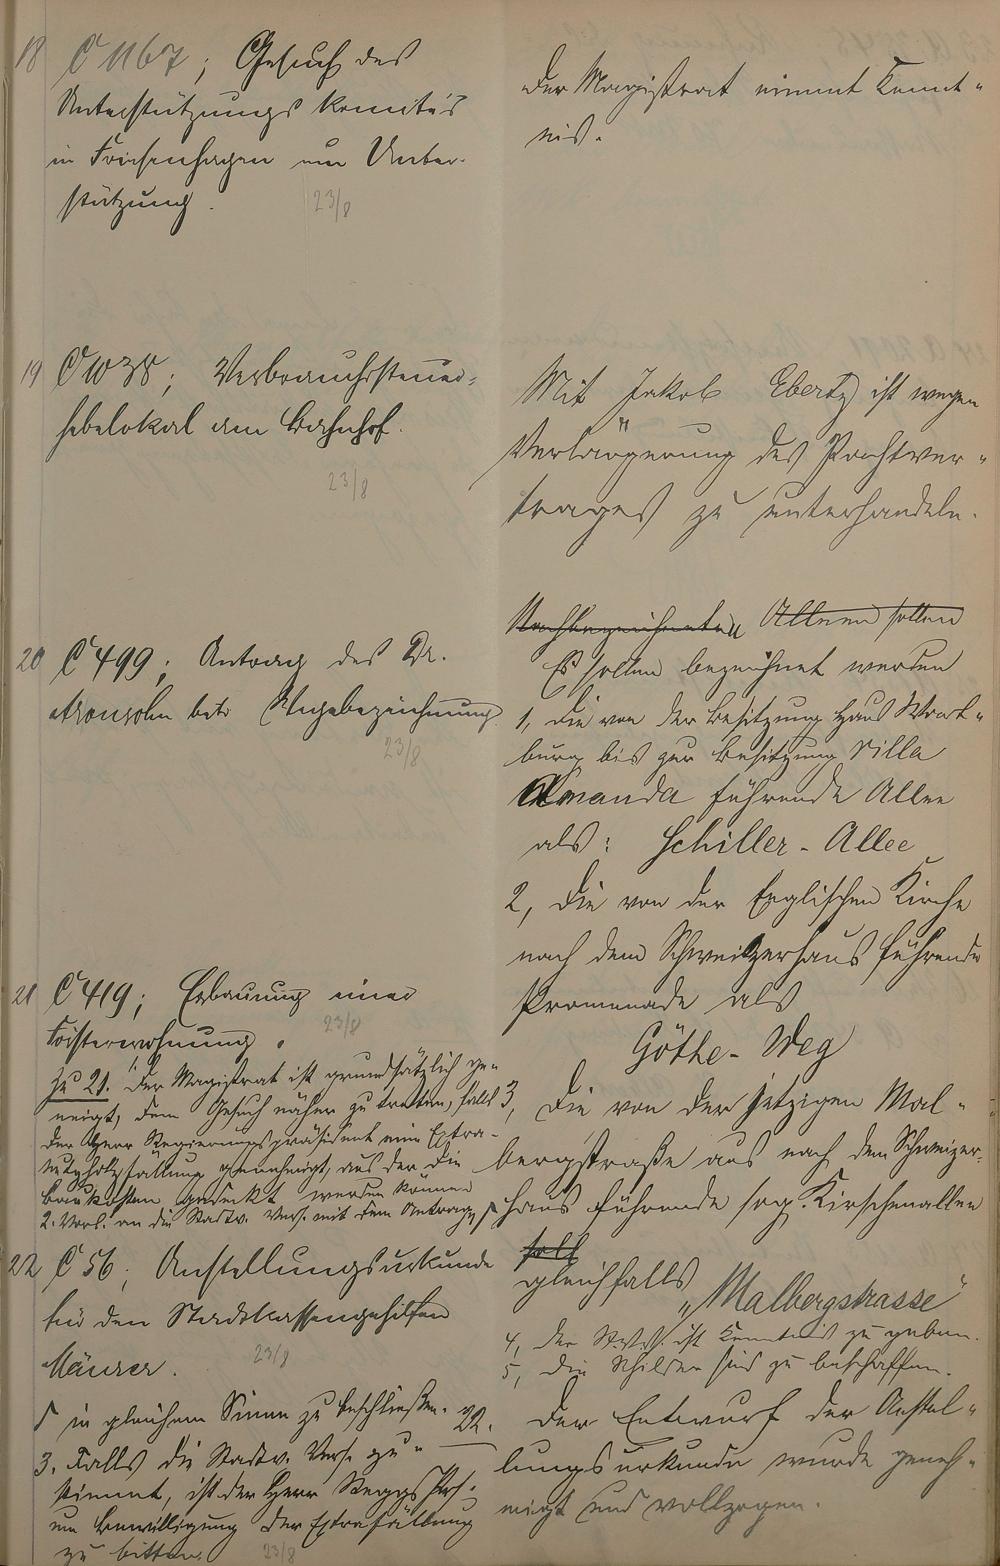 18 C 1167; Gesuch des
Unterstützungs Komités
in Friesenhagen um Unter-
stützung.
23/8
Der Magistrat nimmt Kennt-
nis.
19 C 1038; Verbrauchssteuer-
hebelokal am Bahnhof.
23/8
Mit Jakob Ebertz ist wegen
Verlängerung des Pachtver-
trages zu unterhandeln.
20 C 499; Antrag des Dr.
Aronsohn betr. Wegebezeichnung.
23/8
Nachbezeichneten Alleen sollen
Es sollen bezeichnet werden
1, die von der Besitzung Haus Wart-
burg bis zur Besitzung Villa
Amanda führende Allee
als: Schiller-Allee
2, die von der Englischen Kirche
nach dem Schweizerhaus führende
Promenade als
Göthe-Weg
3, die von der jetzigen Mal-
bergstraße aus nach dem Schweizer-
haus führende sog. Kirschenallee
soll
gleichfalls „Malbergstrasse"
4, der St.V.V. ist Kenntnis zu geben.
5, die Schilder sind zu beschaffen.
21 C 419; Erbauung einer
Försterwohnung.
23/8
Zu 21. 1. Der Magistrat ist grundsätzlich ge-
neigt, dem Gesuch näher zu treten, falls
der Herr Regierungspräsident eine Extra-
nutzholzfällung genehmigt, aus der die
Baukosten gedeckt werden können
2. Vorl. an die Stadtv. Vers. mit dem Antrage,
22 C 56; Anstellungsurkunde
für den Stadtkassengehilfen
Mäurer.
23/8
in gleichem Sinne zu beschließen.
3. Falls die Stadtv. Vers. zu-
stimmt, ist der Herr Reggs Präs.
um Bewilligung der Extrafällung
zu bitten.
23/8
22. Der Entwurf der Anstel-
lungsurkunde wurde geneh-
migt und vollzogen.